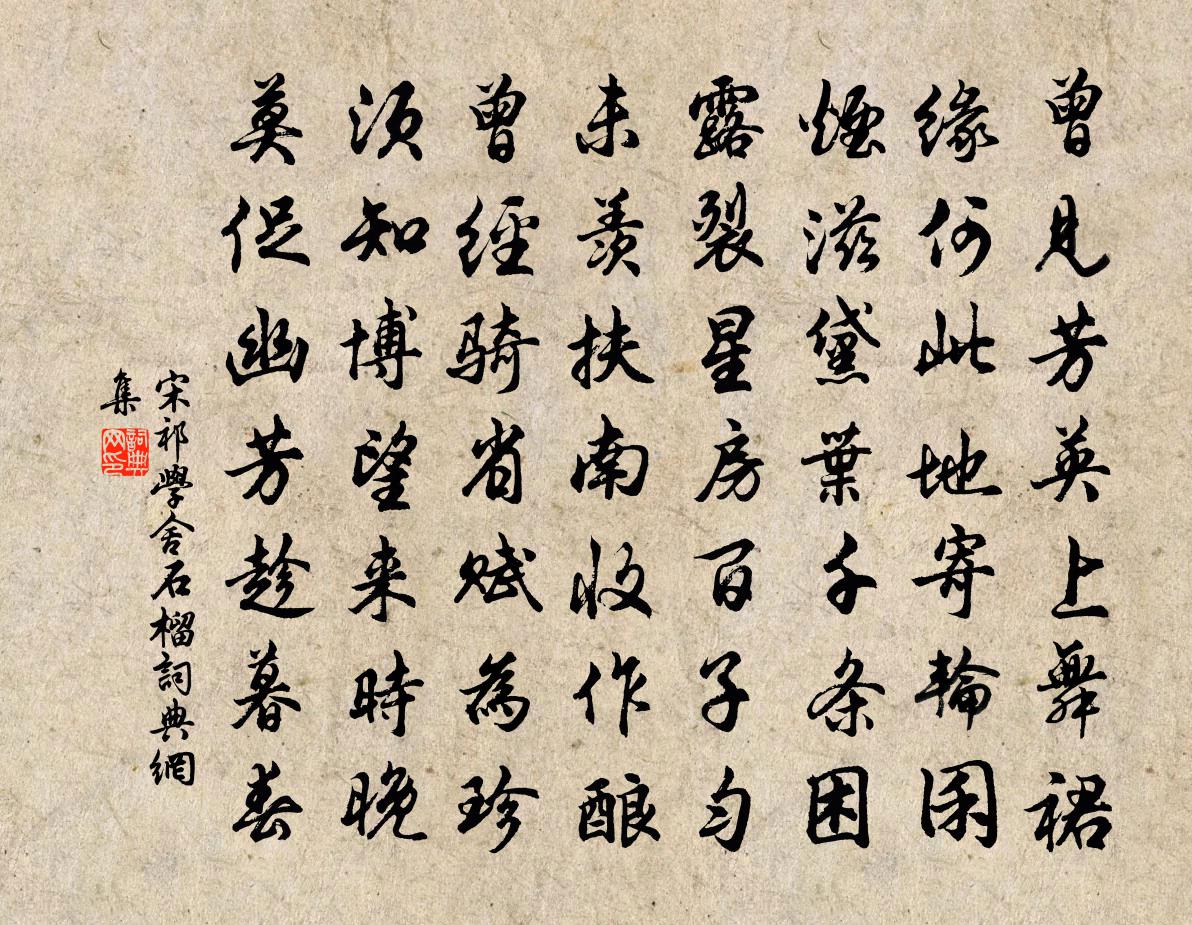 曾見芳英上舞裙
緣何此地寄輪囷
煙滋黛葉千条困
露裂星房百子勻
未羨扶南收作酿
曾經騎省赋為珍
須知博望来時晚
莫促幽芳趁暮春
宋祁學舍石榴詞典網
集
詞典网印